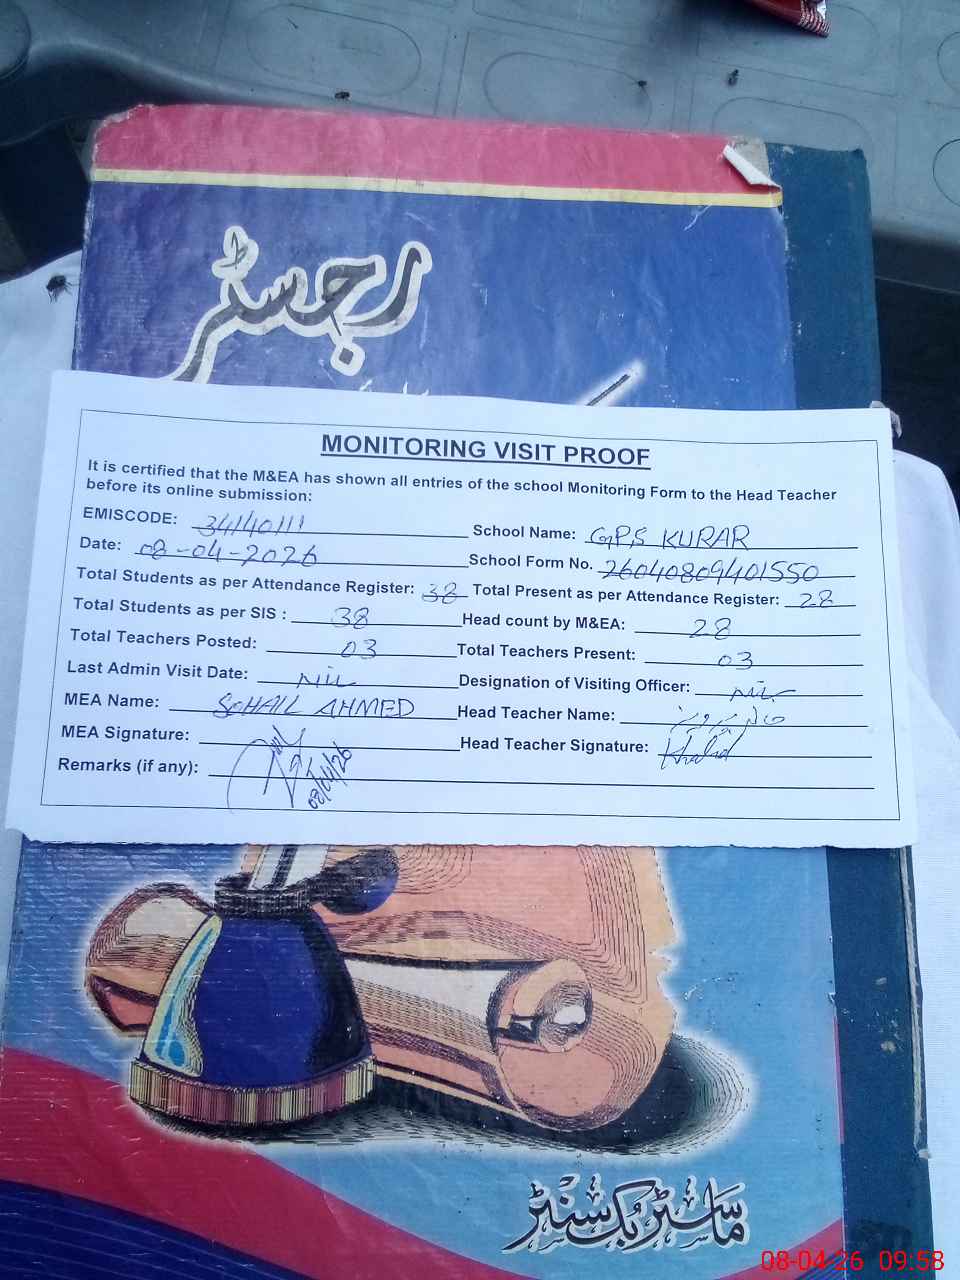 رجسٹر
MONITORING VISIT PROOF
It is certified that the M&EA has shown all entries of the school Monitoring Form to the Head Teacher
before its online submission:
EMISCODE: 34140111 School Name: GPS KURAR
Date: 08-04-2026 School Form No. 26040809401550
Total Students as per Attendance Register: 38 Total Present as per Attendance Register: 28
Total Students as per SIS : 38 Head count by M&EA: 28
Total Teachers Posted: 03 Total Teachers Present: 03
Last Admin Visit Date: Nil Designation of Visiting Officer: Nil
MEA Name: SOHAIL AHMED Head Teacher Name: خالد پرویز
MEA Signature: Head Teacher Signature: Khalid
Remarks (if any): 08/04/26
ماسٹر بک سنٹر
08-04-26 09:58